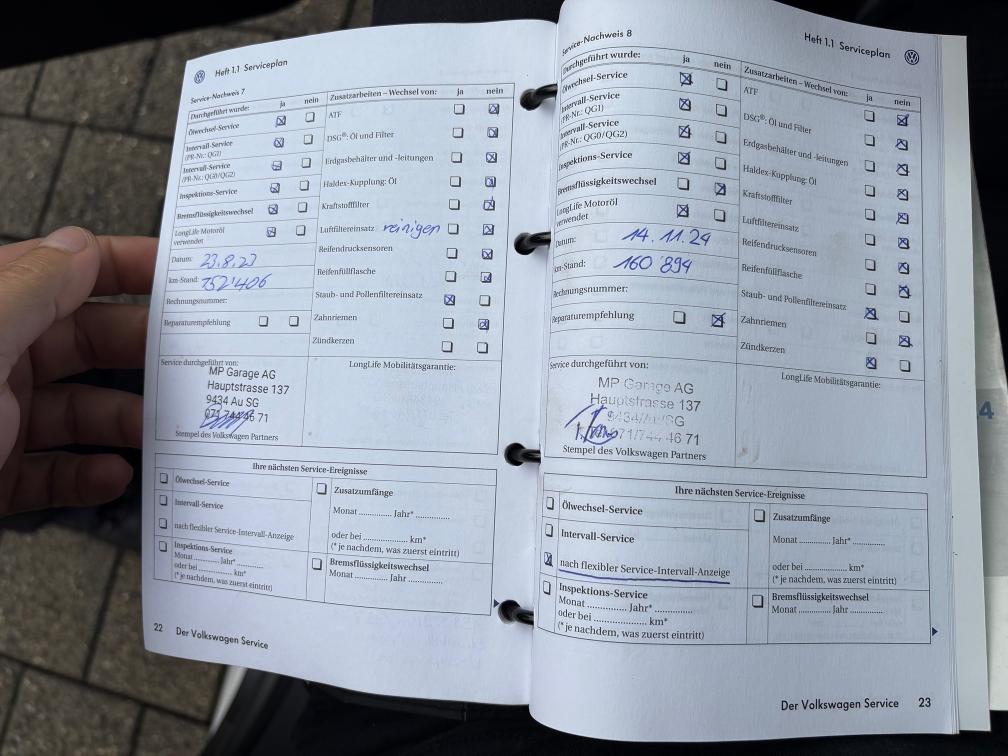 Heft 1.1 Serviceplan
Service-Nachweis 7
Durchgeführt wurde: ja nein
Ölwechsel-Service
Intervall-Service
(PR-Nr.: QG1)
Intervall-Service
(PR-Nr.: QG0/QG2)
Inspektions-Service
Bremsflüssigkeitswechsel
LongLife Motoröl
verwendet
Datum: 23.8.23
km-Stand: 152'406
Rechnungsnummer:
Reparaturempfehlung
Zusatzarbeiten – Wechsel von: ja nein
ATF
DSG®: Öl und Filter
Erdgasbehälter und -leitungen
Haldex-Kupplung: Öl
Kraftstofffilter
Luftfiltereinsatz reinigen
Reifendrucksensoren
Reifenfüllflasche
Staub- und Pollenfiltereinsatz
Zahnriemen
Zündkerzen
Service durchgeführt von:
MP Garage AG
Hauptstrasse 137
9434 Au SG
071 744 46 71
Stempel des Volkswagen Partners
LongLife Mobilitätsgarantie:
Ihre nächsten Service-Ereignisse
Ölwechsel-Service
Intervall-Service
nach flexibler Service-Intervall-Anzeige
Inspektions-Service
Monat ........... Jahr* ...............
oder bei ..................... km*
(* je nachdem, was zuerst eintritt)
Zusatzumfänge
Monat ........... Jahr* ...............
oder bei ..................... km*
(* je nachdem, was zuerst eintritt)
Bremsflüssigkeitswechsel
Monat ........... Jahr ...............
22 Der Volkswagen Service
Heft 1.1 Serviceplan
Service-Nachweis 8
Durchgeführt wurde: ja nein
Ölwechsel-Service
Intervall-Service
(PR-Nr.: QG1)
Intervall-Service
(PR-Nr.: QG0/QG2)
Inspektions-Service
Bremsflüssigkeitswechsel
LongLife Motoröl
verwendet
Datum: 14.11.24
km-Stand: 160'894
Rechnungsnummer:
Reparaturempfehlung
Zusatzarbeiten – Wechsel von: ja nein
ATF
DSG®: Öl und Filter
Erdgasbehälter und -leitungen
Haldex-Kupplung: Öl
Kraftstofffilter
Luftfiltereinsatz
Reifendrucksensoren
Reifenfüllflasche
Staub- und Pollenfiltereinsatz
Zahnriemen
Zündkerzen
Service durchgeführt von:
MP Garage AG
Hauptstrasse 137
9434/Au/SG
Tel. 071/744 46 71
Stempel des Volkswagen Partners
LongLife Mobilitätsgarantie:
Ihre nächsten Service-Ereignisse
Ölwechsel-Service
Intervall-Service
nach flexibler Service-Intervall-Anzeige
Inspektions-Service
Monat ........... Jahr* ...............
oder bei ..................... km*
(* je nachdem, was zuerst eintritt)
Zusatzumfänge
Monat ........... Jahr* ...............
oder bei ..................... km*
(* je nachdem, was zuerst eintritt)
Bremsflüssigkeitswechsel
Monat ........... Jahr ...............
Der Volkswagen Service 23
4